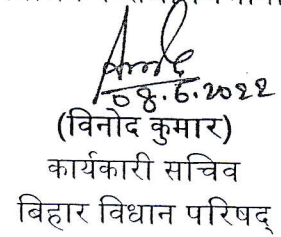 08.6.2022
(विनोद कुमार)
कार्यकारी सचिव
बिहार विधान परिषद्